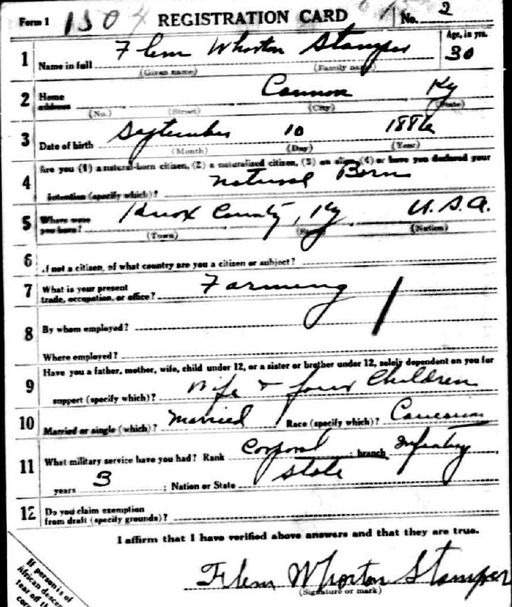 Form 1 1504 REGISTRATION CARD No. 2
1 Name in full Flem Whorton Stamper Age, in yrs. 30
(Given name) (Family name)
2 Home address Cannon Ky
(No.) (Street) (City) (State)
3 Date of birth September 10 1886
(Month) (Day) (Year)
4 Are you (1) a natural-born citizen, (2) a naturalized citizen, (3) an alien, (4) or have you declared your
intention (specify which)? Natural Born
5 Where were you born? Knox County, Ky U.S.A.
(Town) (State) (Nation)
6 If not a citizen, of what country are you a citizen or subject?
7 What is your present trade, occupation, or office? Farming
8 By whom employed?
Where employed?
9 Have you a father, mother, wife, child under 12, or a sister or brother under 12, solely dependent on you for
support (specify which)? Wife & four Children
10 Married or single (which)? Married Race (specify which)? Caucasian
11 What military service have you had? Rank Corporal ; branch Infantry
years 3 ; Nation or State State
12 Do you claim exemption from draft (specify grounds)?
I affirm that I have verified above answers and that they are true.
Flem Whorton Stamper
(Signature or mark)
If person is of
African descent
tear off